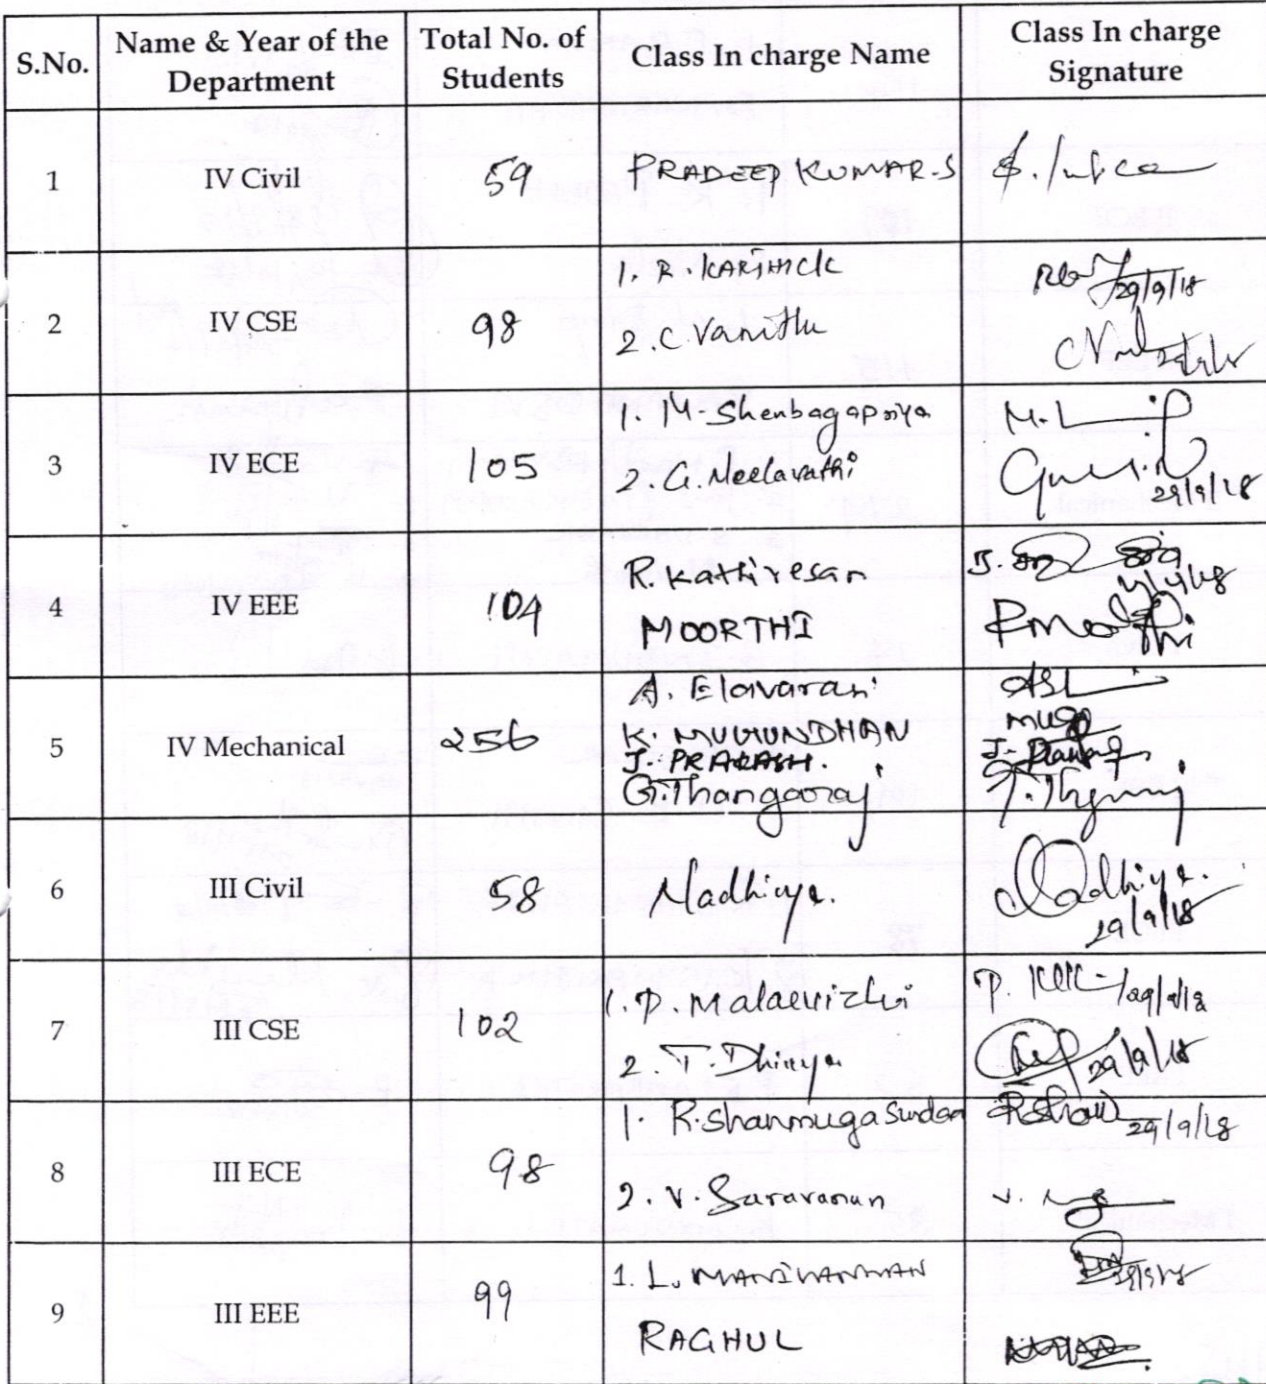 S.No.
Name & Year of the Department
Total No. of Students
Class In charge Name
Class In charge Signature
1
IV Civil
59
PRADEEP KUMAR.S
2
IV CSE
98
1. R. KARTHICK
29/9/18
2. C. Vanitha
3
IV ECE
105
1. M. Shenbagapriya
2. G. Neelavathi
29/9/18
4
IV EEE
104
R. Kathiresan
MOORTHI
5
IV Mechanical
256
A. Elavarasi
K. MUGUNDHAN
J. PRAKASH.
G. Thangaraj
6
III Civil
58
Nadhiya.
Nadhiya.
29/9/18
7
III CSE
102
1. P. Malarvizhi
29/9/18
2. T. Dhivya
29/9/18
8
III ECE
98
1. R. Shanmuga Sundar
29/9/18
2. V. Saravanan
9
III EEE
99
1. L. MANIVANNAN
RAGHUL